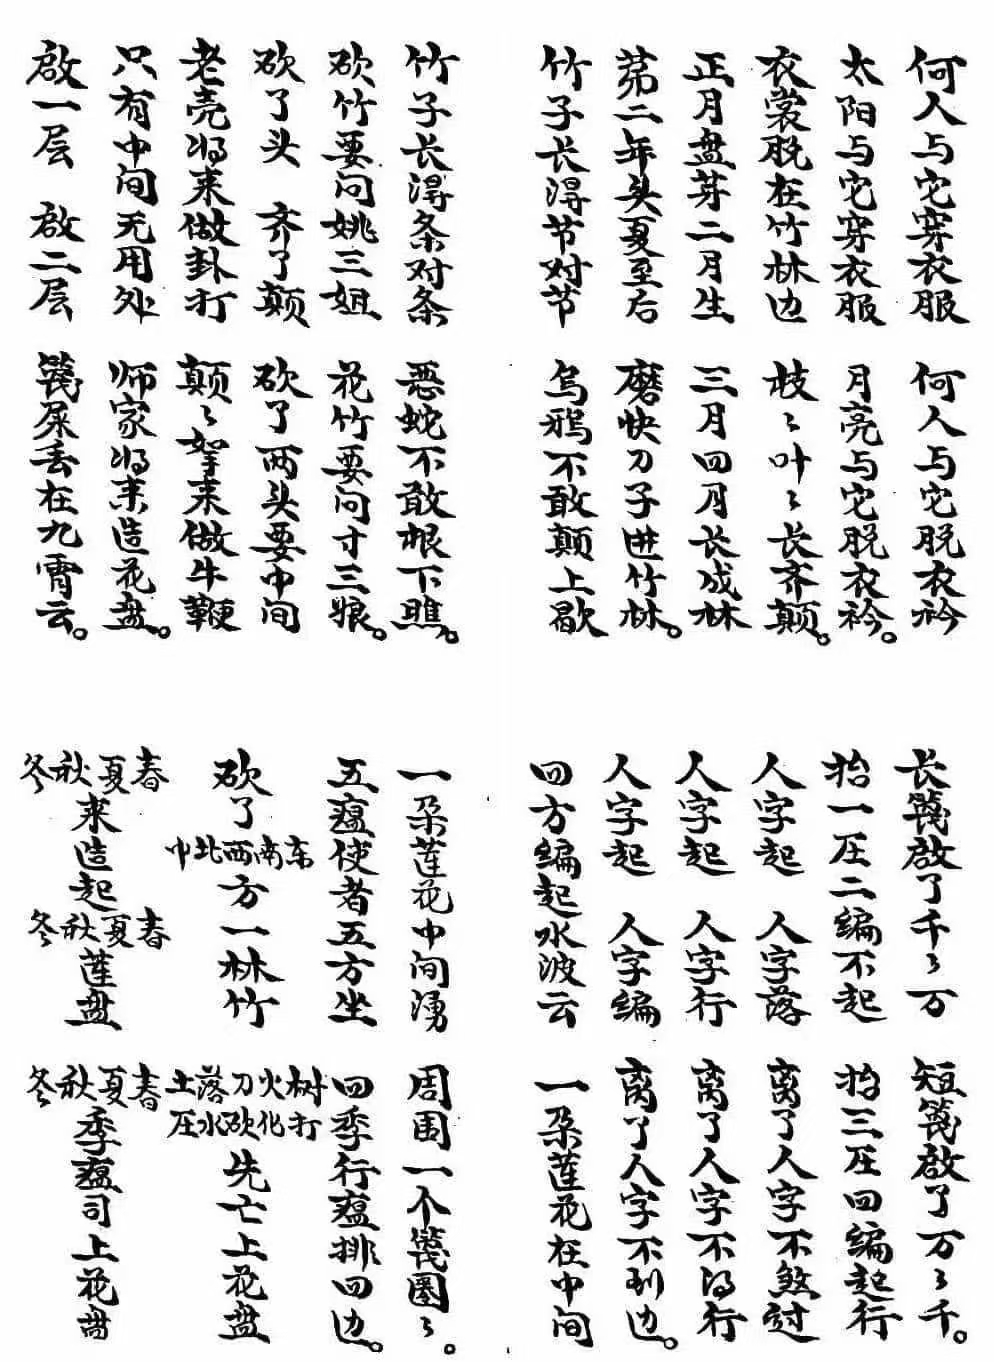 何人与它穿衣服 何人与它脱衣衿
太阳与它穿衣服 月亮与它脱衣衿。
衣裳脱在竹林边 枝〻叶〻长齐颠。
正月盘芽二月生 三月四月长成林
苐二年头夏至后 磨快刀子进竹林。
竹子长淂节对节 乌鸦不敢颠上歇
竹子长淂条对条 恶蛇不敢根下瞧。
砍竹要问姚三姐 花竹要问寸三娘。
砍了头 齐了颠 砍了两头要中间
老壳将来做卦打 颠〻拏来做牛鞭
只有中间无用处 师家将来造花盘。
啟一层 啟二层 篾屎丢在九霄云。
长篾啟了千〻万 短篾啟了万〻千。
抬一压二编不起 抬三压四编起行
人字起 人字落 离了人字不煞过
人字起 人字行 离了人字不得行
人字起 人字编 离了人字不到边。
四方编起水波云 一朵莲花在中间
一朵莲花中间湧 周围一个篾圈〻。
五瘟使者五方坐 四季行瘟排四边。
砍了东南西北中方一林竹 树打火化刀砍落水土压先亡上花盘
春夏秋冬来造起春夏秋冬莲盘 春夏秋冬季瘟司上花盘